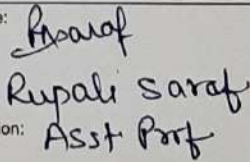 e:
RSaraf
Rupali Saraf
ion: Asst Prof